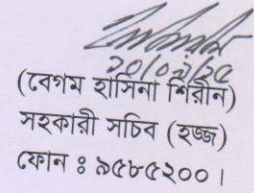 (বেগম হাসিনা শিরীন)
সহকারী সচিব (হজ্জ)
ফোন ঃ ৯৫৮৫২০০।